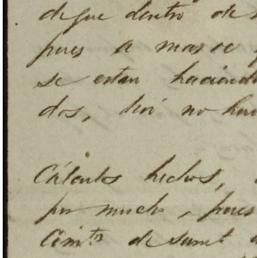 degue dentro de
pues a mas de
se estan haciend
dos, no ha
Cálculos hechos,
por mucho, pues
Comts. de sumt